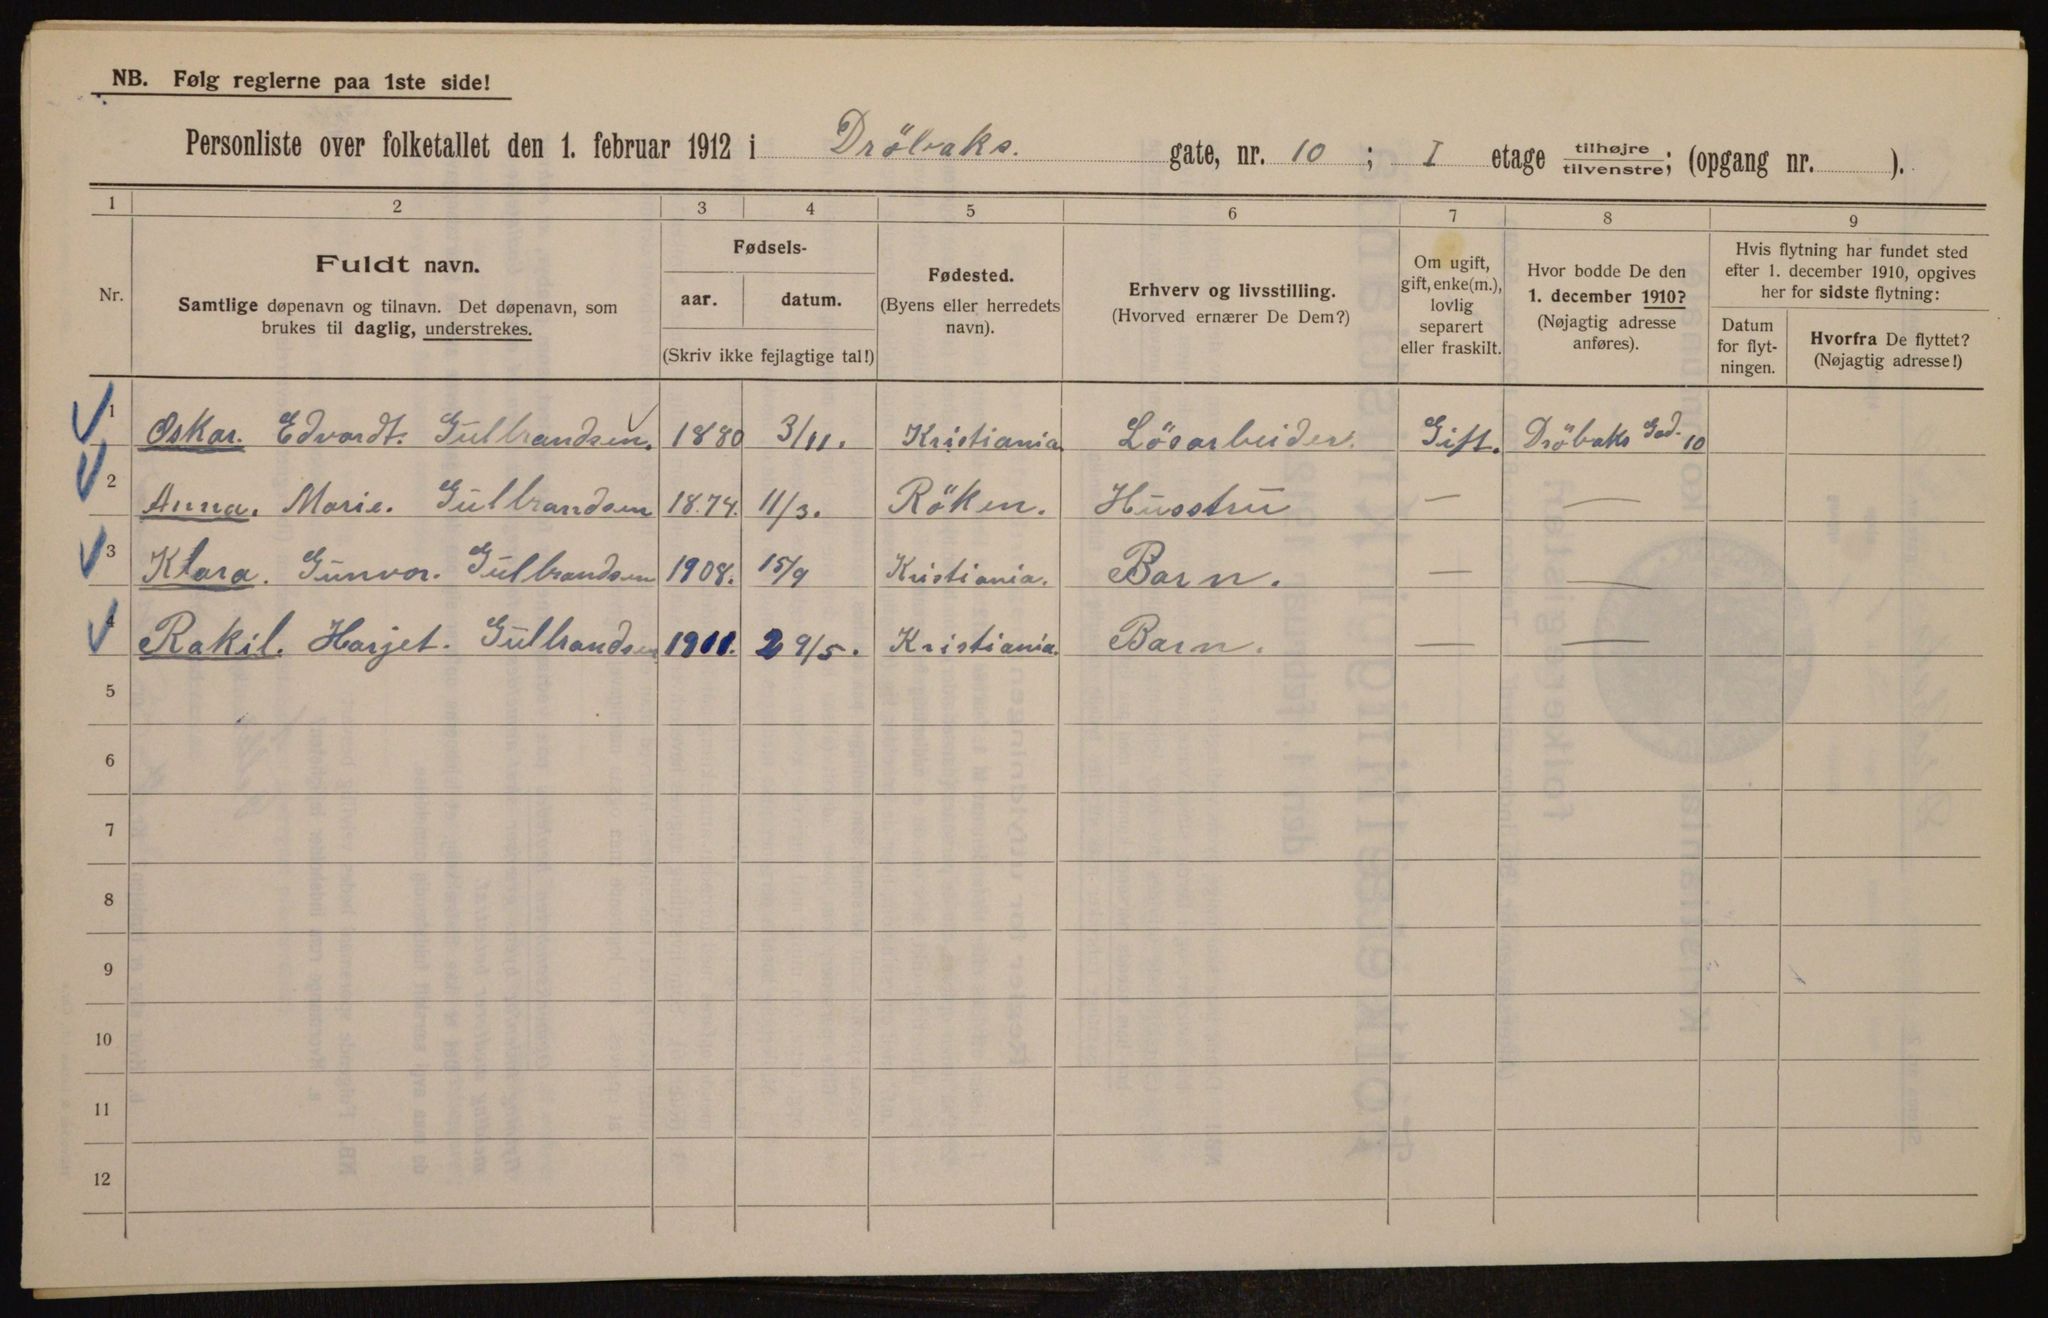 NB. Følg reglerne paa 1ste side!
Personliste over folketallet den 1. februar 1912 i Dröbaks. gate, nr. 10 ; I etage tilhøjre/tilvenstre; (opgang nr. ).
1 2 3 4 5 6 7 8 9
Nr.
Fuldt navn.
Samtlige døpenavn og tilnavn. Det døpenavn, som
brukes til daglig, understrekes.
Fødsels-
aar. datum.
(Skriv ikke fejlagtige tal!)
Fødested.
(Byens eller herredets
navn).
Erhverv og livsstilling.
(Hvorved ernærer De Dem?)
Om ugift,
gift, enke(m.),
lovlig
separert
eller fraskilt.
Hvor bodde De den
1. december 1910?
(Nøjagtig adresse
anføres).
Hvis flytning har fundet sted
efter 1. december 1910, opgives
her for sidste flytning:
Datum
for flyt-
ningen.
Hvorfra De flyttet?
(Nøjagtig adresse!)
1 Oskar. Edvardt. Gulbrandsen. 1880 3/11. Kristiania Lösarbeider. Gift. Dröbaks Gad. 10
2 Anna. Marie. Gulbrandsen 1874. 11/3. Röken. Husstru — —
3 Klara. Gunvor. Gulbrandsen 1908. 15/9 Kristiania. Barn. — —
4 Rakil. Harjet. Gulbrandsen 1911. 29/5. Kristiania. Barn. — —
5
6
7
8
9
10
11
12